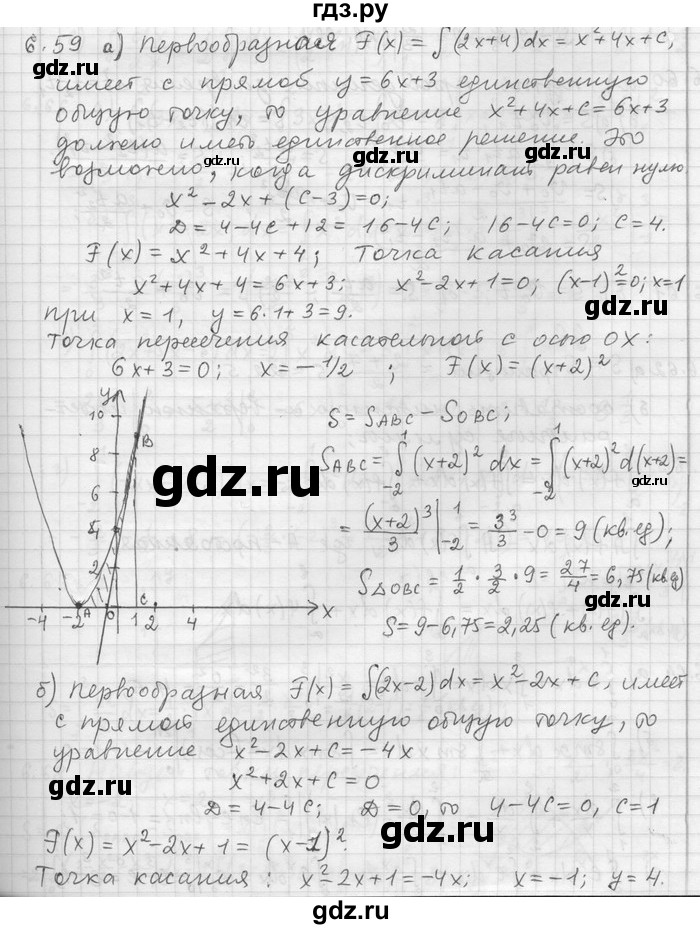 гдз.ру
6.59 а) Первообразная F(x) = ∫(2x+4)dx = x²+4x+C,
имеет с прямой y=6x+3 единственную
общую точку, то уравнение x²+4x+C=6x+3
должно иметь единственное решение. Это
возможно, когда дискриминант равен нулю
gdz.ru gdz.ru
x²-2x+(C-3)=0;
D=4-4C+12=16-4C; 16-4C=0; C=4.
F(x)=x²+4x+4; Точка касания
x²+4x+4=6x+3; x²-2x+1=0; (x-1)²=0; x=1
gdz.ru gdz.ru
при x=1, y=6·1+3=9.
Точка пересечения касательной с осью OX:
6x+3=0; x=-1/2; F(x)=(x+2)²
y
10
8
6
4
2
-4 -2 A 0 1 C 2 4 x
B
S=S ABC - S OBC;
S ABC = ∫₋₂¹ (x+2)² dx = ∫₋₂¹ (x+2)² d(x+2)=
gdz.ru
= (x+2)³/3 |₋₂¹ = 3³/3 - 0 = 9 (кв.ед);
gdz.ru
S△OBC = 1/2 · 3/2 · 9 = 27/4 = 6,75 (кв.ед)
S=9-6,75=2,25 (кв.ед).
б) Первообразная F(x)=∫(2x-2)dx=x²-2x+C, имеет
gdz.ru
с прямой единственную общую точку, то
уравнение x²-2x+C=-4x
gdz.ru
x²+2x+C=0
D=4-4C; D=0, то 4-4C=0, C=1
gdz.ru gdz.ru
F(x)=x²-2x+1=(x-1)².
Точка касания: x²-2x+1=-4x; x=-1; y=4.
gdz.ru